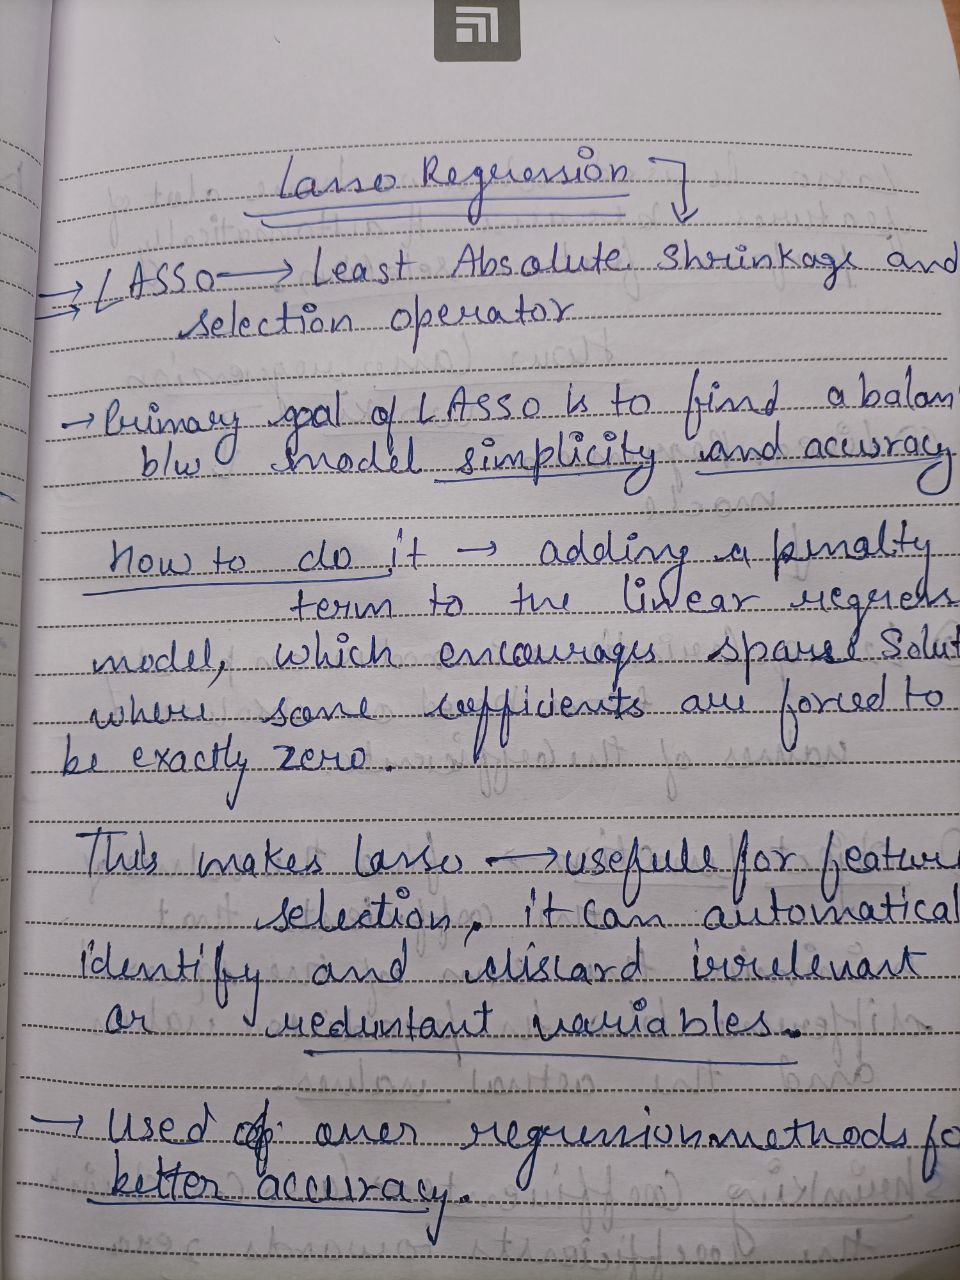 Lasso Regression
LASSO → Least Absolute Shrinkage and
selection operator
→ Primary goal of LASSO is to find a balan
b/w model simplicity and accuracy
How to do it → adding a penalty
term to the linear regress
model, which encourages sparse Solut
where some coefficients are forced to
be exactly zero.
This makes lasso → usefull for featur
selection, it can automatical
identify and discard irrelevant
or reduntant variables.
→ Used over regression methods fo
better accuracy.